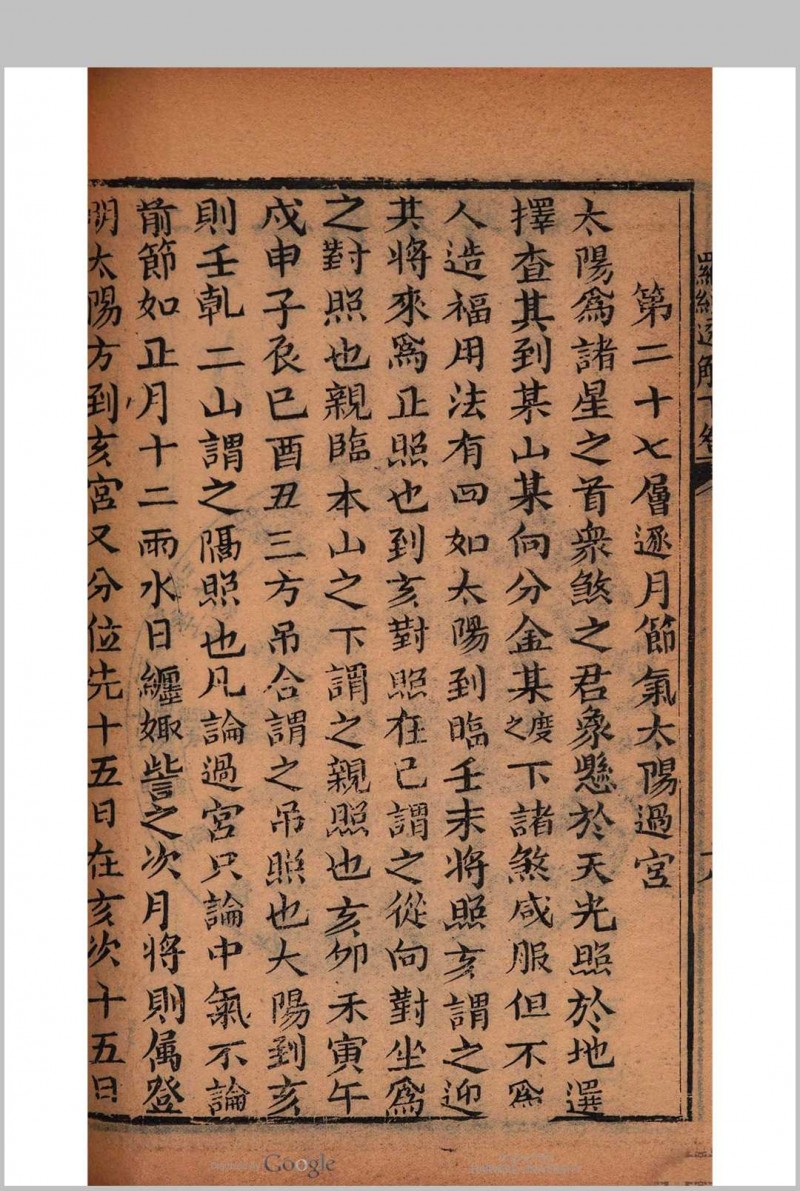 羅經透解下卷
第二十七層逐月節氣太陽過宮
太陽為諸星之首衆煞之君象懸於天光照於地選
擇查其到某山某向分金某之度下諸煞咸服但不為
人造福用法有四如太陽到臨壬末將照亥謂之迎
其將來為正照也到亥對照在巳謂之從向對坐為
之對照也親臨本山之下謂之親照也亥卯禾寅午
戍申子辰巳酉丑三方吊合謂之吊照也大陽到亥
則壬乹二山謂之隔照也凡論過宮只論中氣不論
前節如正月十二雨水日纏娵訾之次月將則属登
明太陽方到亥宮又分位先十五日在亥次十五日
Google